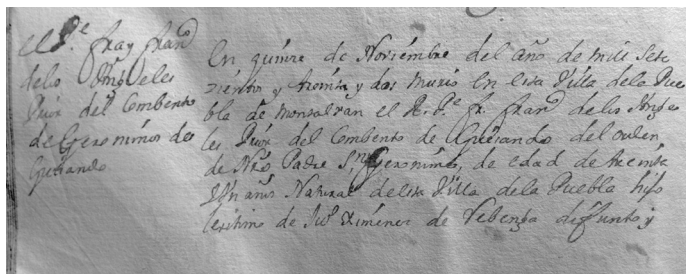 el P.e fray fran.co
delos Angeles
Prior del Combento
de Geronimos de
Guisando
En quince de Noviembre del año de mill sete
zientos y treinta y dos murio en esta Villa dela Pue
bla de Montalvan el R. P.e fr. fran.co delos Ange
les Prior del Combento de Guisando del orden
de Nro Padre Sn Geronimo, de edad de treinta
años Natural de esta Villa dela Puebla hijo
lexitimo de Ju.o Ximenez de defunto y